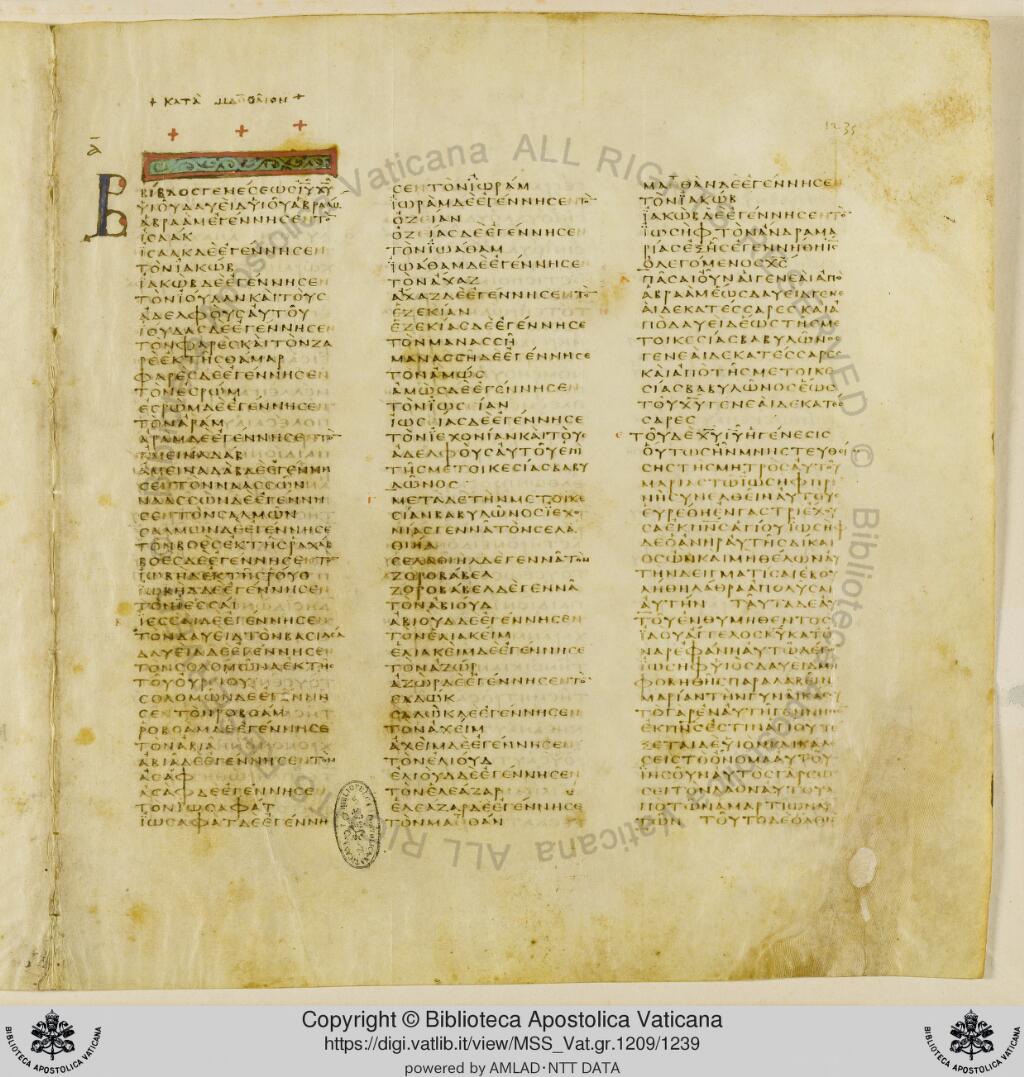 + ΚΑΤΑ ΜΑΘΘΑΙΟΝ +
1235
Α
ΒΙΒΛΟΣ ΓΕΝΕΣΕΩΣ ΙΥ ΧΥ
ΥΙΟΥ ΔΑΥΕΙΔ ΥΙΟΥ ΑΒΡΑΑΜ
ΑΒΡΑΑΜ ΕΓΕΝΝΗΣΕΝ ΤΟΝ
ΙΣΑΑΚ
ΙΣΑΑΚ ΔΕ ΕΓΕΝΝΗΣΕΝ
ΤΟΝ ΙΑΚΩΒ
ΙΑΚΩΒ ΔΕ ΕΓΕΝΝΗΣΕΝ
ΤΟΝ ΙΟΥΔΑΝ ΚΑΙ ΤΟΥΣ
ΑΔΕΛΦΟΥΣ ΑΥΤΟΥ
ΙΟΥΔΑΣ ΔΕ ΕΓΕΝΝΗΣΕΝ
ΤΟΝ ΦΑΡΕΣ ΚΑΙ ΤΟΝ ΖΑ
ΡΕ ΕΚ ΤΗΣ ΘΑΜΑΡ
ΦΑΡΕΣ ΔΕ ΕΓΕΝΝΗΣΕΝ
ΤΟΝ ΕΣΡΩΜ
ΕΣΡΩΜ ΔΕ ΕΓΕΝΝΗΣΕΝ
ΤΟΝ ΑΡΑΜ
ΑΡΑΜ ΔΕ ΕΓΕΝΝΗΣΕΝ ΤΟΝ
ΑΜΕΙΝΑΔΑΒ
ΑΜΕΙΝΑΔΑΒ ΔΕ ΕΓΕΝΝΗ
ΣΕΝ ΤΟΝ ΝΑΑΣΣΩΝ
ΝΑΑΣΣΩΝ ΔΕ ΕΓΕΝΝΗ
ΣΕΝ ΤΟΝ ΣΑΛΜΩΝ
ΣΑΛΜΩΝ ΔΕ ΕΓΕΝΝΗΣΕ
ΤΟΝ ΒΟΕΣ ΕΚ ΤΗΣ ΡΑΧΑΒ
ΒΟΕΣ ΔΕ ΕΓΕΝΝΗΣΕΝ ΤΟΝ
ΙΩΒΗΔ ΕΚ ΤΗΣ ΡΟΥΘ
ΙΩΒΗΔ ΔΕ ΕΓΕΝΝΗΣΕΝ
ΤΟΝ ΙΕΣΣΑΙ
ΙΕΣΣΑΙ ΔΕ ΕΓΕΝΝΗΣΕΝ
ΤΟΝ ΔΑΥΕΙΔ ΤΟΝ ΒΑΣΙΛΕΑ
ΔΑΥΕΙΔ ΔΕ ΕΓΕΝΝΗΣΕΝ
ΤΟΝ ΣΟΛΟΜΩΝΑ ΕΚ ΤΗΣ
ΤΟΥ ΟΥΡΕΙΟΥ
ΣΟΛΟΜΩΝ ΔΕ ΕΓΕΝΝΗ
ΣΕΝ ΤΟΝ ΡΟΒΟΑΜ
ΡΟΒΟΑΜ ΔΕ ΕΓΕΝΝΗΣΕ
ΤΟΝ ΑΒΙΑ
ΑΒΙΑ ΔΕ ΕΓΕΝΝΗΣΕΝ ΤΟΝ
ΑΣΑΦ
ΑΣΑΦ ΔΕ ΕΓΕΝΝΗΣΕΝ
ΤΟΝ ΙΩΣΑΦΑΤ
ΙΩΣΑΦΑΤ ΔΕ ΕΓΕΝΝΗ
ΣΕΝ ΤΟΝ ΙΩΡΑΜ
ΙΩΡΑΜ ΔΕ ΕΓΕΝΝΗΣΕΝ ΤΟΝ
ΟΖΕΙΑΝ
ΟΖΕΙΑΣ ΔΕ ΕΓΕΝΝΗΣΕΝ
ΤΟΝ ΙΩΑΘΑΜ
ΙΩΑΘΑΜ ΔΕ ΕΓΕΝΝΗΣΕ
ΤΟΝ ΑΧΑΖ
ΑΧΑΖ ΔΕ ΕΓΕΝΝΗΣΕΝ ΤΟΝ
ΕΖΕΚΙΑΝ
ΕΖΕΚΙΑΣ ΔΕ ΕΓΕΝΝΗΣΕ
ΤΟΝ ΜΑΝΑΣΣΗ
ΜΑΝΑΣΣΗ ΔΕ ΕΓΕΝΝΗΣΕ
ΤΟΝ ΑΜΩΣ
ΑΜΩΣ ΔΕ ΕΓΕΝΝΗΣΕΝ
ΤΟΝ ΙΩΣΕΙΑΝ
ΙΩΣΕΙΑΣ ΔΕ ΕΓΕΝΝΗΣΕ
ΤΟΝ ΙΕΧΟΝΙΑΝ ΚΑΙ ΤΟΥΣ
ΑΔΕΛΦΟΥΣ ΑΥΤΟΥ ΕΠΙ
ΤΗΣ ΜΕΤΟΙΚΕΣΙΑΣ ΒΑΒΥ
ΛΩΝΟΣ
ΜΕΤΑ ΔΕ ΤΗΝ ΜΕΤΟΙΚΕ
ΣΙΑΝ ΒΑΒΥΛΩΝΟΣ ΙΕΧΟ
ΝΙΑΣ ΓΕΝΝΑ ΤΟΝ ΣΕΛΑ
ΘΙΗΛ
ΣΕΛΑΘΙΗΛ ΔΕ ΓΕΝΝΑ ΤΟΝ
ΖΟΡΟΒΑΒΕΛ
ΖΟΡΟΒΑΒΕΛ ΔΕ ΓΕΝΝΑ
ΤΟΝ ΑΒΙΟΥΔ
ΑΒΙΟΥΔ ΔΕ ΕΓΕΝΝΗΣΕΝ
ΤΟΝ ΕΛΙΑΚΕΙΜ
ΕΛΙΑΚΕΙΜ ΔΕ ΕΓΕΝΝΗΣΕ
ΤΟΝ ΑΖΩΡ
ΑΖΩΡ ΔΕ ΕΓΕΝΝΗΣΕΝ ΤΟΝ
ΣΑΔΩΚ
ΣΑΔΩΚ ΔΕ ΕΓΕΝΝΗΣΕΝ
ΤΟΝ ΑΧΕΙΜ
ΑΧΕΙΜ ΔΕ ΕΓΕΝΝΗΣΕΝ
ΤΟΝ ΕΛΙΟΥΔ
ΕΛΙΟΥΔ ΔΕ ΕΓΕΝΝΗΣΕΝ
ΤΟΝ ΕΛΕΑΖΑΡ
ΕΛΕΑΖΑΡ ΔΕ ΕΓΕΝΝΗΣΕ
ΤΟΝ ΜΑΘΘΑΝ
ΜΑΘΘΑΝ ΔΕ ΕΓΕΝΝΗΣΕΝ
ΤΟΝ ΙΑΚΩΒ
ΙΑΚΩΒ ΔΕ ΕΓΕΝΝΗΣΕΝ ΤΟΝ
ΙΩΣΗΦ ΤΟΝ ΑΝΔΡΑ ΜΑ
ΡΙΑΣ ΕΞ ΗΣ ΕΓΕΝΝΗΘΗ ΙΣ
Ο ΛΕΓΟΜΕΝΟΣ ΧΣ
ΠΑΣΑΙ ΟΥΝ ΑΙ ΓΕΝΕΑΙ ΑΠΟ
ΑΒΡΑΑΜ ΕΩΣ ΔΑΥΕΙΔ ΓΕΝΕ
ΑΙ ΔΕΚΑΤΕΣΣΑΡΕΣ ΚΑΙ Α
ΠΟ ΔΑΥΕΙΔ ΕΩΣ ΤΗΣ ΜΕ
ΤΟΙΚΕΣΙΑΣ ΒΑΒΥΛΩΝΟΣ
ΓΕΝΕΑΙ ΔΕΚΑΤΕΣΣΑΡΕΣ
ΚΑΙ ΑΠΟ ΤΗΣ ΜΕΤΟΙΚΕ
ΣΙΑΣ ΒΑΒΥΛΩΝΟΣ ΕΩΣ
ΤΟΥ ΧΥ ΓΕΝΕΑΙ ΔΕΚΑΤΕΣ
ΣΑΡΕΣ
ΤΟΥ ΔΕ ΧΥ ΙΥ Η ΓΕΝΕΣΙΣ
ΟΥΤΩΣ ΗΝ ΜΝΗΣΤΕΥΘΕΙ
ΣΗΣ ΤΗΣ ΜΗΤΡΟΣ ΑΥΤΟΥ
ΜΑΡΙΑΣ ΤΩ ΙΩΣΗΦ ΠΡΙ
Ν Η ΣΥΝΕΛΘΕΙΝ ΑΥΤΟΥΣ
ΕΥΡΕΘΗ ΕΝ ΓΑΣΤΡΙ ΕΧΟΥ
ΣΑ ΕΚ ΠΝΣ ΑΓΙΟΥ ΙΩΣΗΦ
ΔΕ Ο ΑΝΗΡ ΑΥΤΗΣ ΔΙΚΑΙ
ΟΣ ΩΝ ΚΑΙ ΜΗ ΘΕΛΩΝ ΑΥ
ΤΗΝ ΔΕΙΓΜΑΤΙΣΑΙ ΕΒΟΥ
ΛΗΘΗ ΛΑΘΡΑ ΑΠΟΛΥΣΑΙ
ΑΥΤΗΝ ΤΑΥΤΑ ΔΕ ΑΥ
ΤΟΥ ΕΝΘΥΜΗΘΕΝΤΟΣ
ΙΔΟΥ ΑΓΓΕΛΟΣ ΚΥ ΚΑΤ Ο
ΝΑΡ ΕΦΑΝΗ ΑΥΤΩ ΛΕΓΩΝ
ΙΩΣΗΦ ΥΙΟΣ ΔΑΥΕΙΔ ΜΗ
ΦΟΒΗΘΗΣ ΠΑΡΑΛΑΒΕΙΝ
ΜΑΡΙΑΝ ΤΗΝ ΓΥΝΑΙΚΑ ΣΟΥ
ΤΟ ΓΑΡ ΕΝ ΑΥΤΗ ΓΕΝΝΗΘΕΝ
ΕΚ ΠΝΣ ΕΣΤΙΝ ΑΓΙΟΥ ΤΕ
ΞΕΤΑΙ ΔΕ ΥΙΟΝ ΚΑΙ ΚΑΛΕ
ΣΕΙΣ ΤΟ ΟΝΟΜΑ ΑΥΤΟΥ
ΙΗΣΟΥΝ ΑΥΤΟΣ ΓΑΡ ΣΩ
ΣΕΙ ΤΟΝ ΛΑΟΝ ΑΥΤΟΥ Α
ΠΟ ΤΩΝ ΑΜΑΡΤΙΩΝ ΑΥ
ΤΩΝ ΤΟΥΤΟ ΔΕ ΟΛΟΝ
Copyright © Biblioteca Apostolica Vaticana
https://digi.vatlib.it/view/MSS_Vat.gr.1209/1239
powered by AMLAD·NTT DATA
BIBLIOTECA APOSTOLICA VATICANA
BIBLIOTECA APOSTOLICA VATICANA